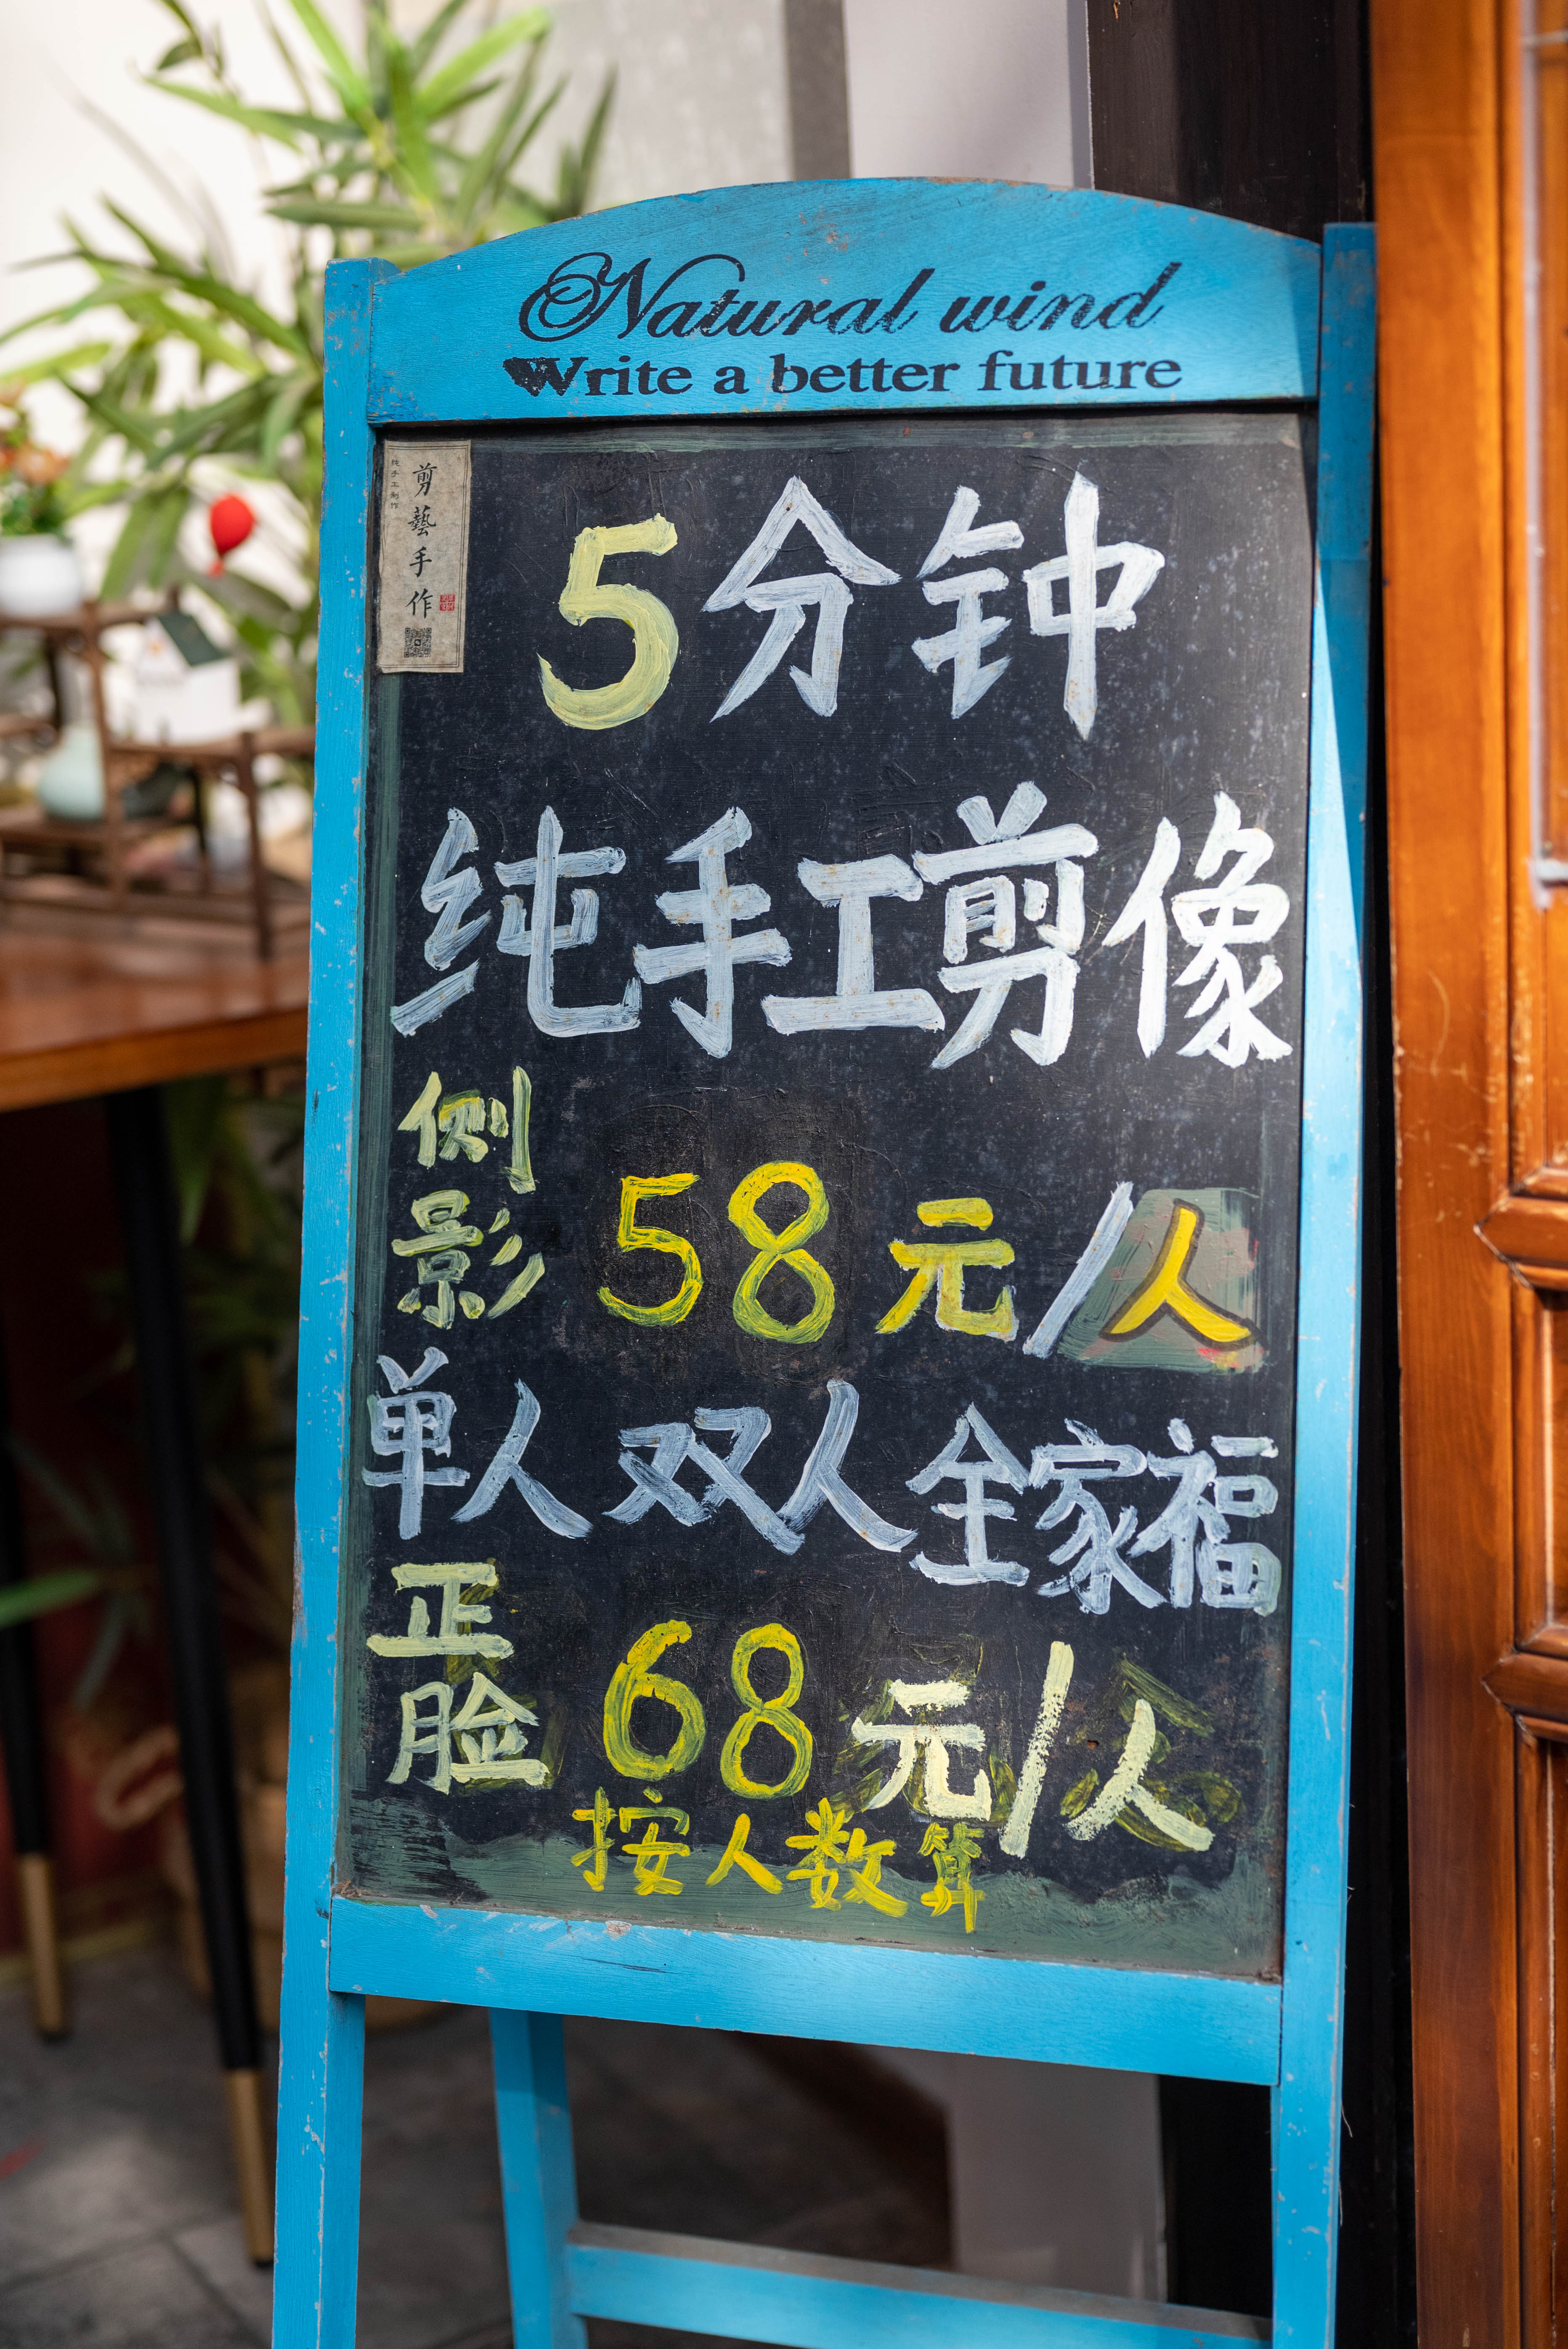 Natural wind
Write a better future
剪藝手作
纯手工制作
5分钟
纯手工剪像
侧影 58元/人
单人 双人 全家福
正脸 68元/人
按人数算